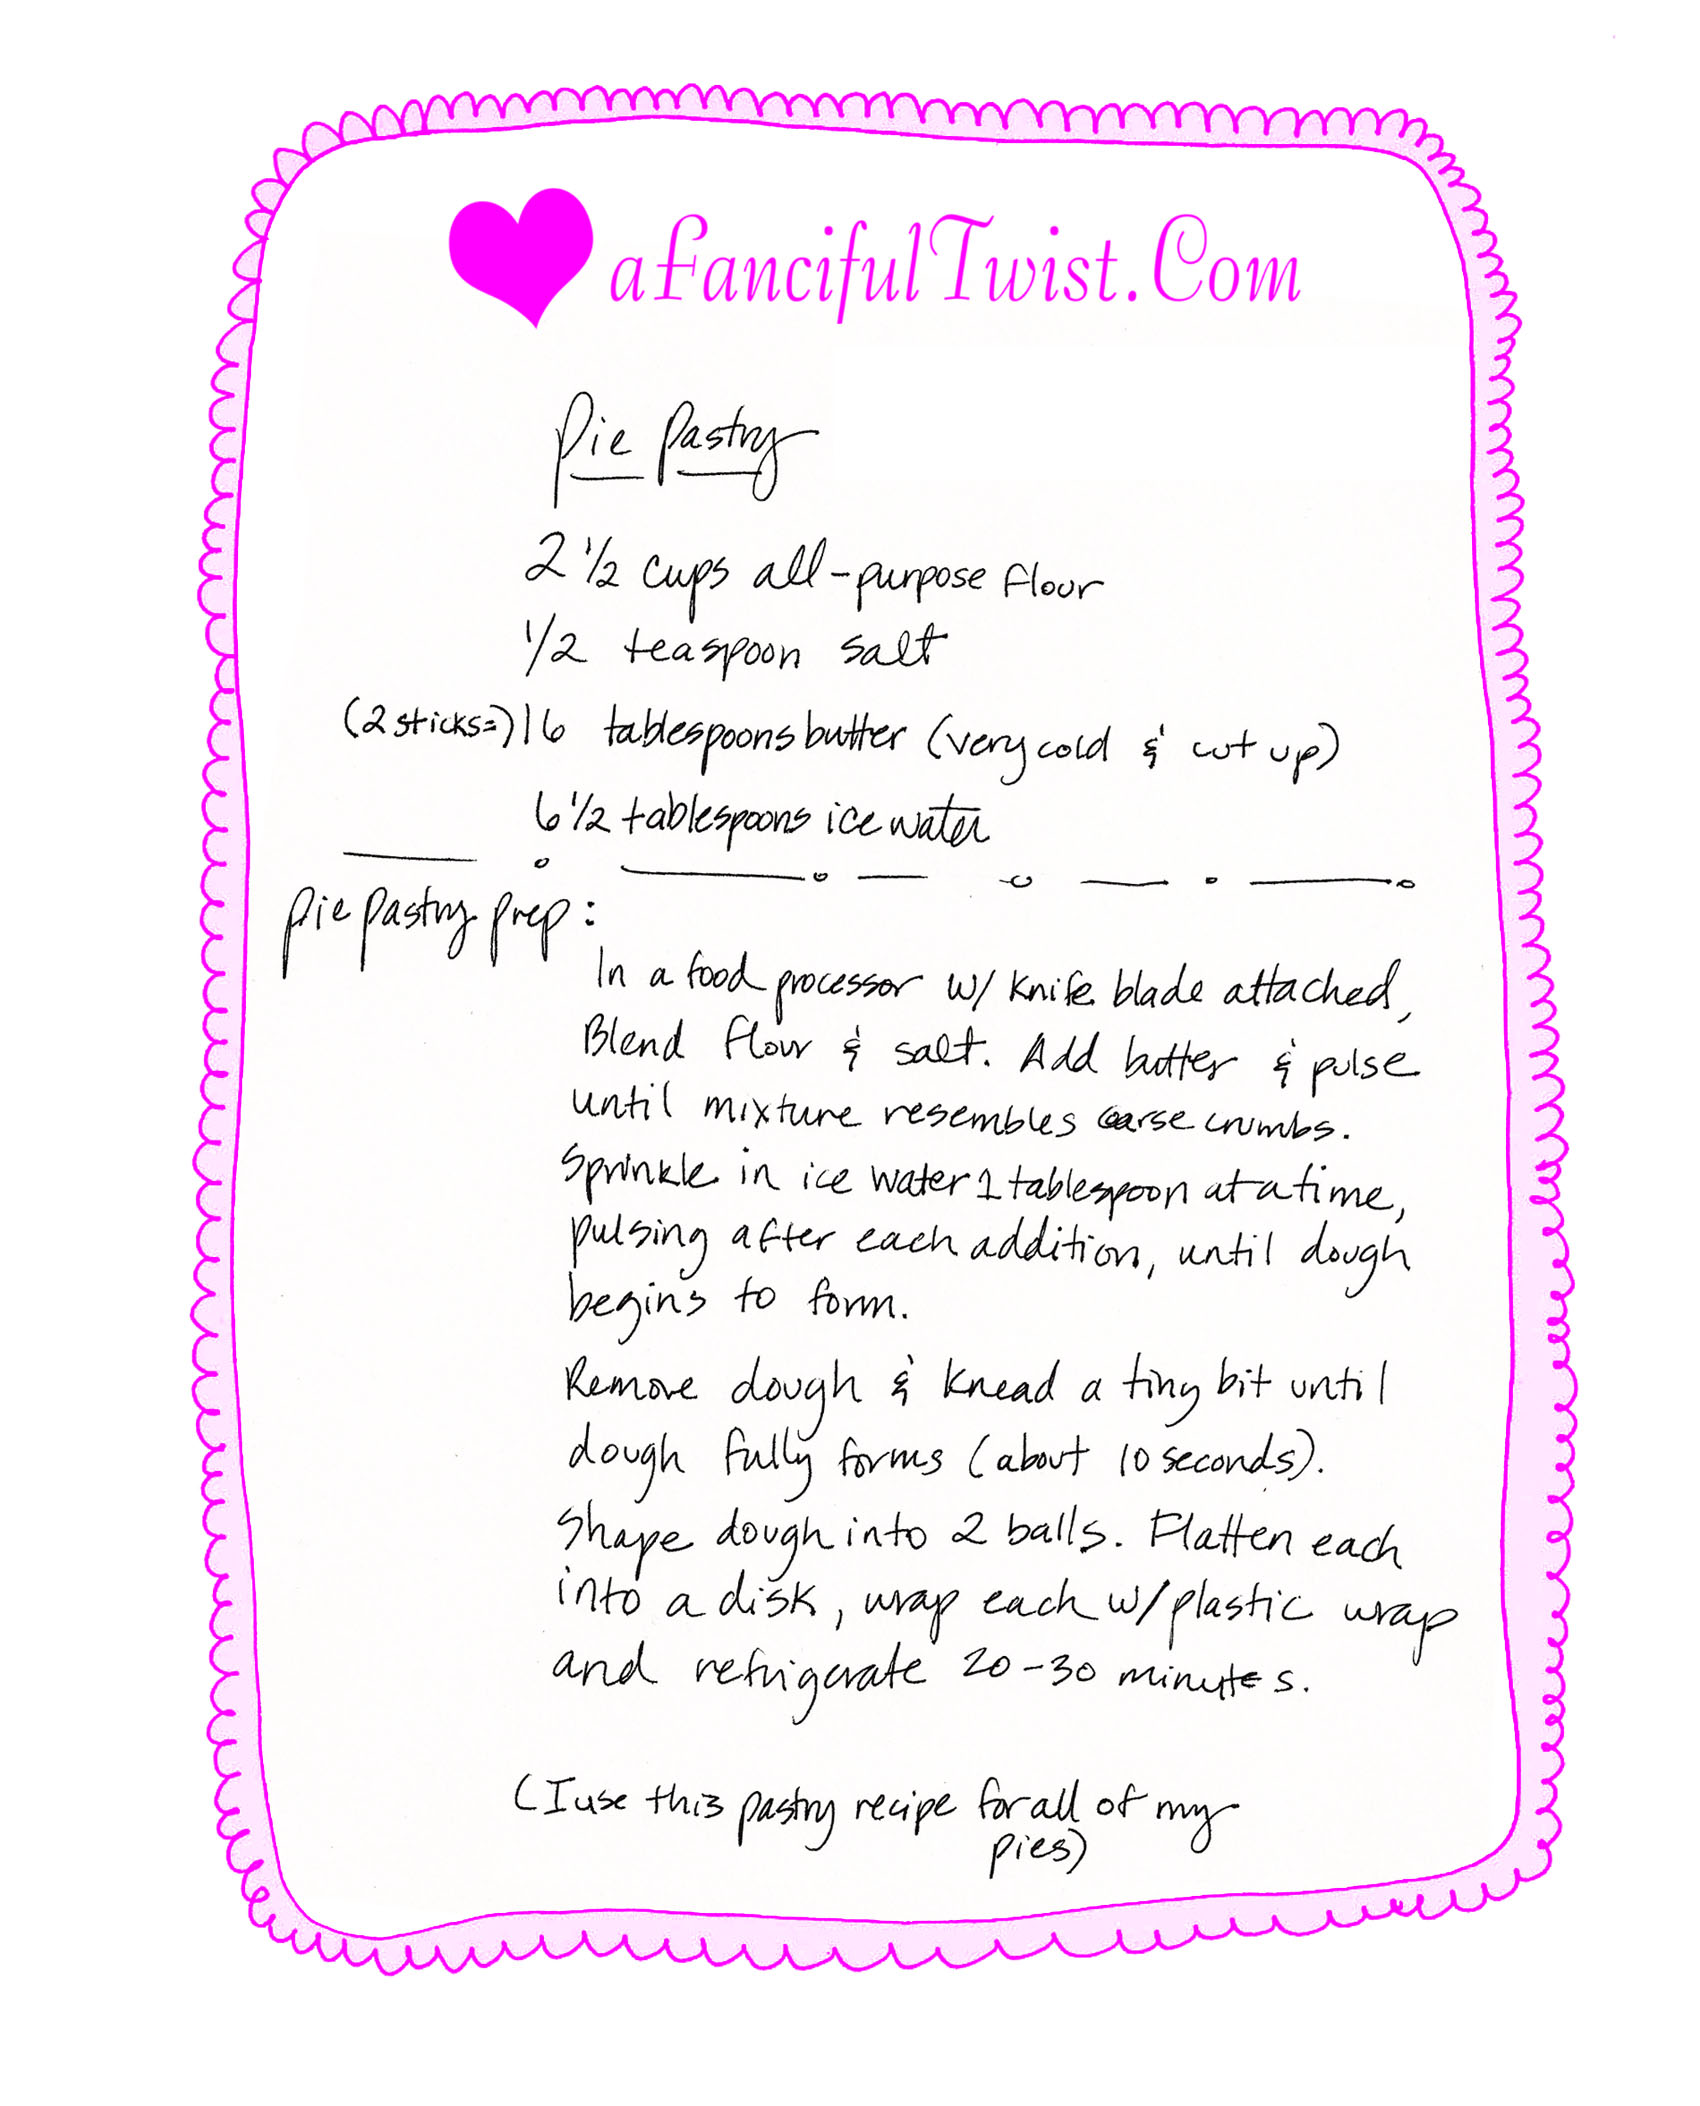 aFancifulTwist.Com
Pie Pastry
2 1/2 cups all-purpose flour
1/2 teaspoon salt
(2 sticks=) 16 tablespoons butter (very cold & cut up)
6 1/2 tablespoons ice water
Pie Pastry Prep:
In a food processor w/ knife blade attached,
Blend flour & salt. Add butter & pulse
until mixture resembles coarse crumbs.
Sprinkle in ice water 1 tablespoon at a time,
pulsing after each addition, until dough
begins to form.
Remove dough & knead a tiny bit until
dough fully forms (about 10 seconds).
Shape dough into 2 balls. Flatten each
into a disk, wrap each w/ plastic wrap
and refrigerate 20-30 minutes.
(I use this pastry recipe for all of my
pies)